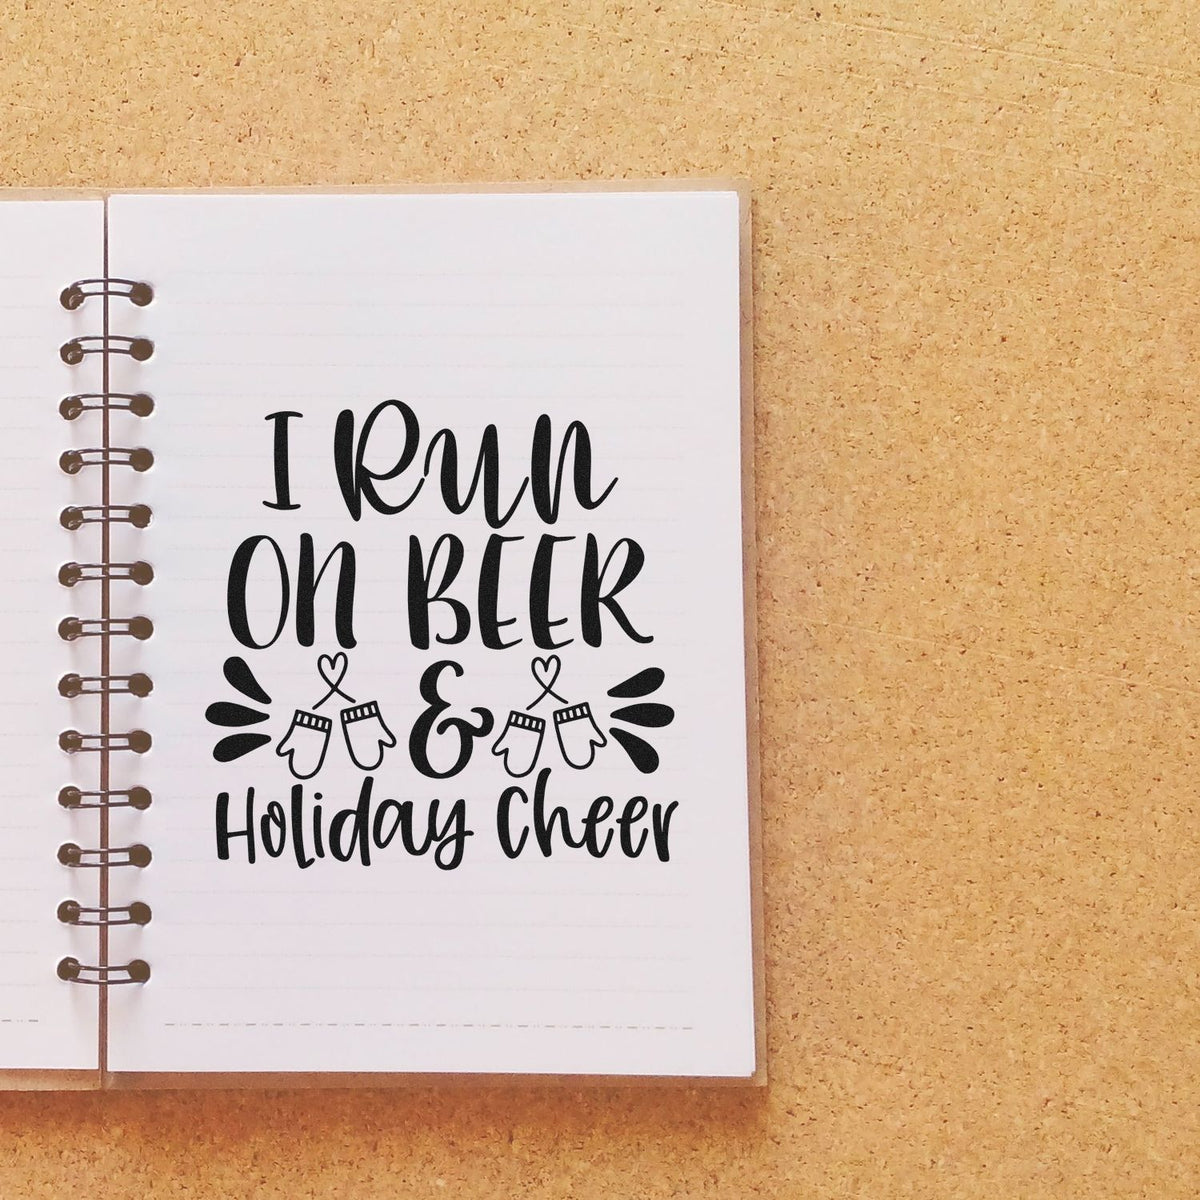 I Run
On BEER
&
Holiday Cheer